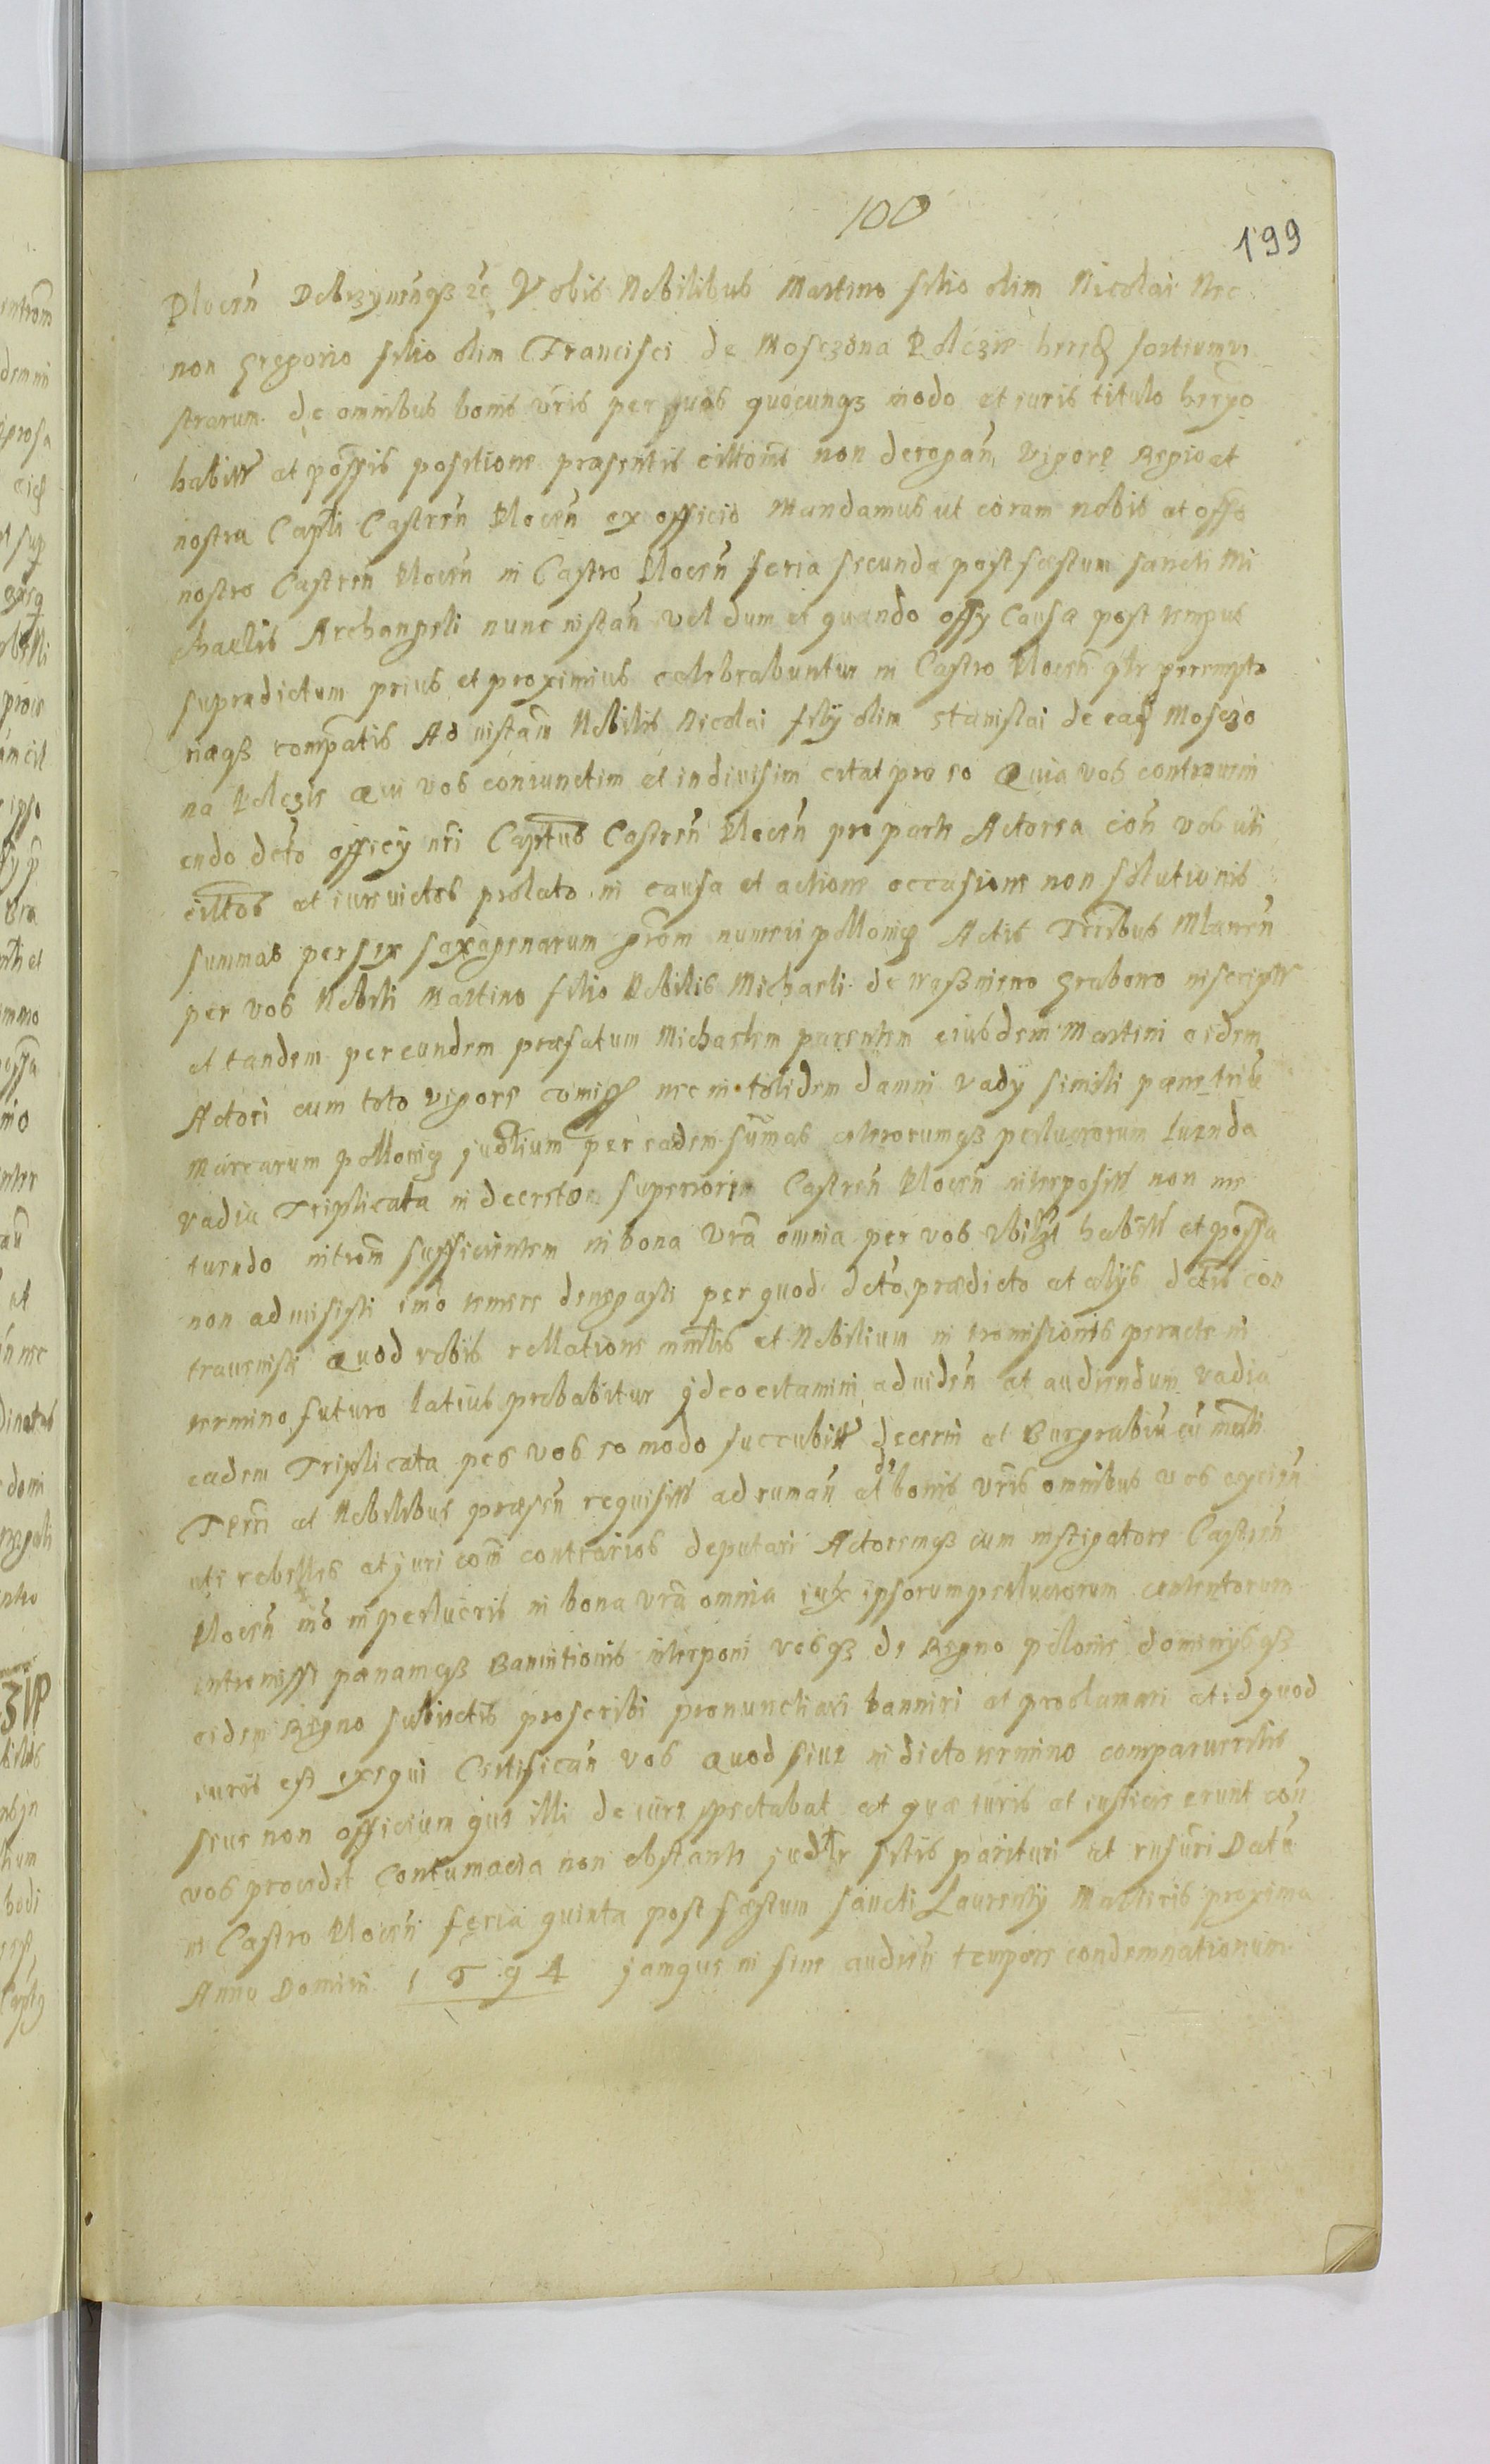 100
199
Plocen̄ Dobrzynenqȝ ꝛc Vobis Nobilibus Martino filio olim Nicolai Nec
non Gregorio filio olim Francisci de Moszczona Polczie hered sortium vr
strarum de omnibus bonis vr̄is per quas quocunqȝ modo et iuris titulo
habitis et possis positione præsentis cittonis non derogan̄ Vigore Regio et
nostra Captli Castren̄ Plocen̄ ex officio Mandamus ut coram nobis et offo
nostro Castren̄ Plocen̄ in Castro Plocen̄ feria secunda post fæstum sancti Mi
chaelis Archangeli nunc instan̄ vel dum et quando offy Causæ post tempus
supradictum prius et proximius celebrabuntur in Castro Plocen̄ ptr perempto
rieqȝ compatis Ad instam̄ Nobilis Nicolai filij olim Stanislai de eadẽ Moszczo
na Polczie Qui vos coniunctim et indiuisim citat pro eo Quia vos contraueni
endo dcto officij nr̄i Captus Castren̄ Plocen̄ pro parte Actorea con̄ vos uti
cittos et iureuictos prolato in causa et actione occasione non solutionis
summas per sex sexagenarum prom numeri pollonicæ Actis Terr̄bus Mlauen̄
per vos Nobili Martino filio Nobilis Michaeli de Grabowo inscriptæ
et tandem per eundem præfatum Michaelem parentem eiusdem Martini eidem
Actori cum toto vigore comiss nec in totidem damni Vadij simili pæne trium
Marcarum pollonicæ judtium per easdem sum̄as ceterorumqȝ perlucrorum luenda
vadia Triplicata in decreto superiorim Castren̄ Plocen̄ interposita non me
tuendo introm̄ sufficientem in bona vr̄a omnia per vos vbilꝫ habita et possa
non admisisti imo temere denegasti per quod dcto prædicto et alijs dctis con
trauenisti Quod vobis rellatione mn̄lis et Nobilium in tromisionis peracte in
termino futuro latius probabitur jdeo citamini ad uiden̄ et audiendum Vadia
eadem Triplicata per vos eo modo succubita decerni et Burgrabiũ cũ mn̄li
Terr̄i et Nobilibus præsen̄ requisitis ad ruman̄ et de bonis vr̄is omnibus vos expeten̄
uti rebelles et juri com̄ contrarios deputari Actoremqȝ cum instigatore Castren̄
Plocen̄ in perlucris in bona vr̄a omnia iuxta ipsorum perlucrorum contentorum
intromissi pænamqȝ Bannitionis interponi vosqȝ de Regno poloniæ dominijsqȝ
eidem Regno subiectis proscribi pronunctiari banniri et proclamari et id quod
iuris est exequi Certifican̄ vos Quod siue in dicto termino comparueritis
seue non officium qué illi de iure spectabat et quæ iuris et iusticiæ erunt con̄
vos procedet Contumacia non obstante judtr sitis parituri et rnsuri Datũ
in Castro Plocen̄ feria quinta post fæstum sancti Laurentij Martiris proxima
Anno Domini 1694 jamque in fine audien̄ tempore condemnationum